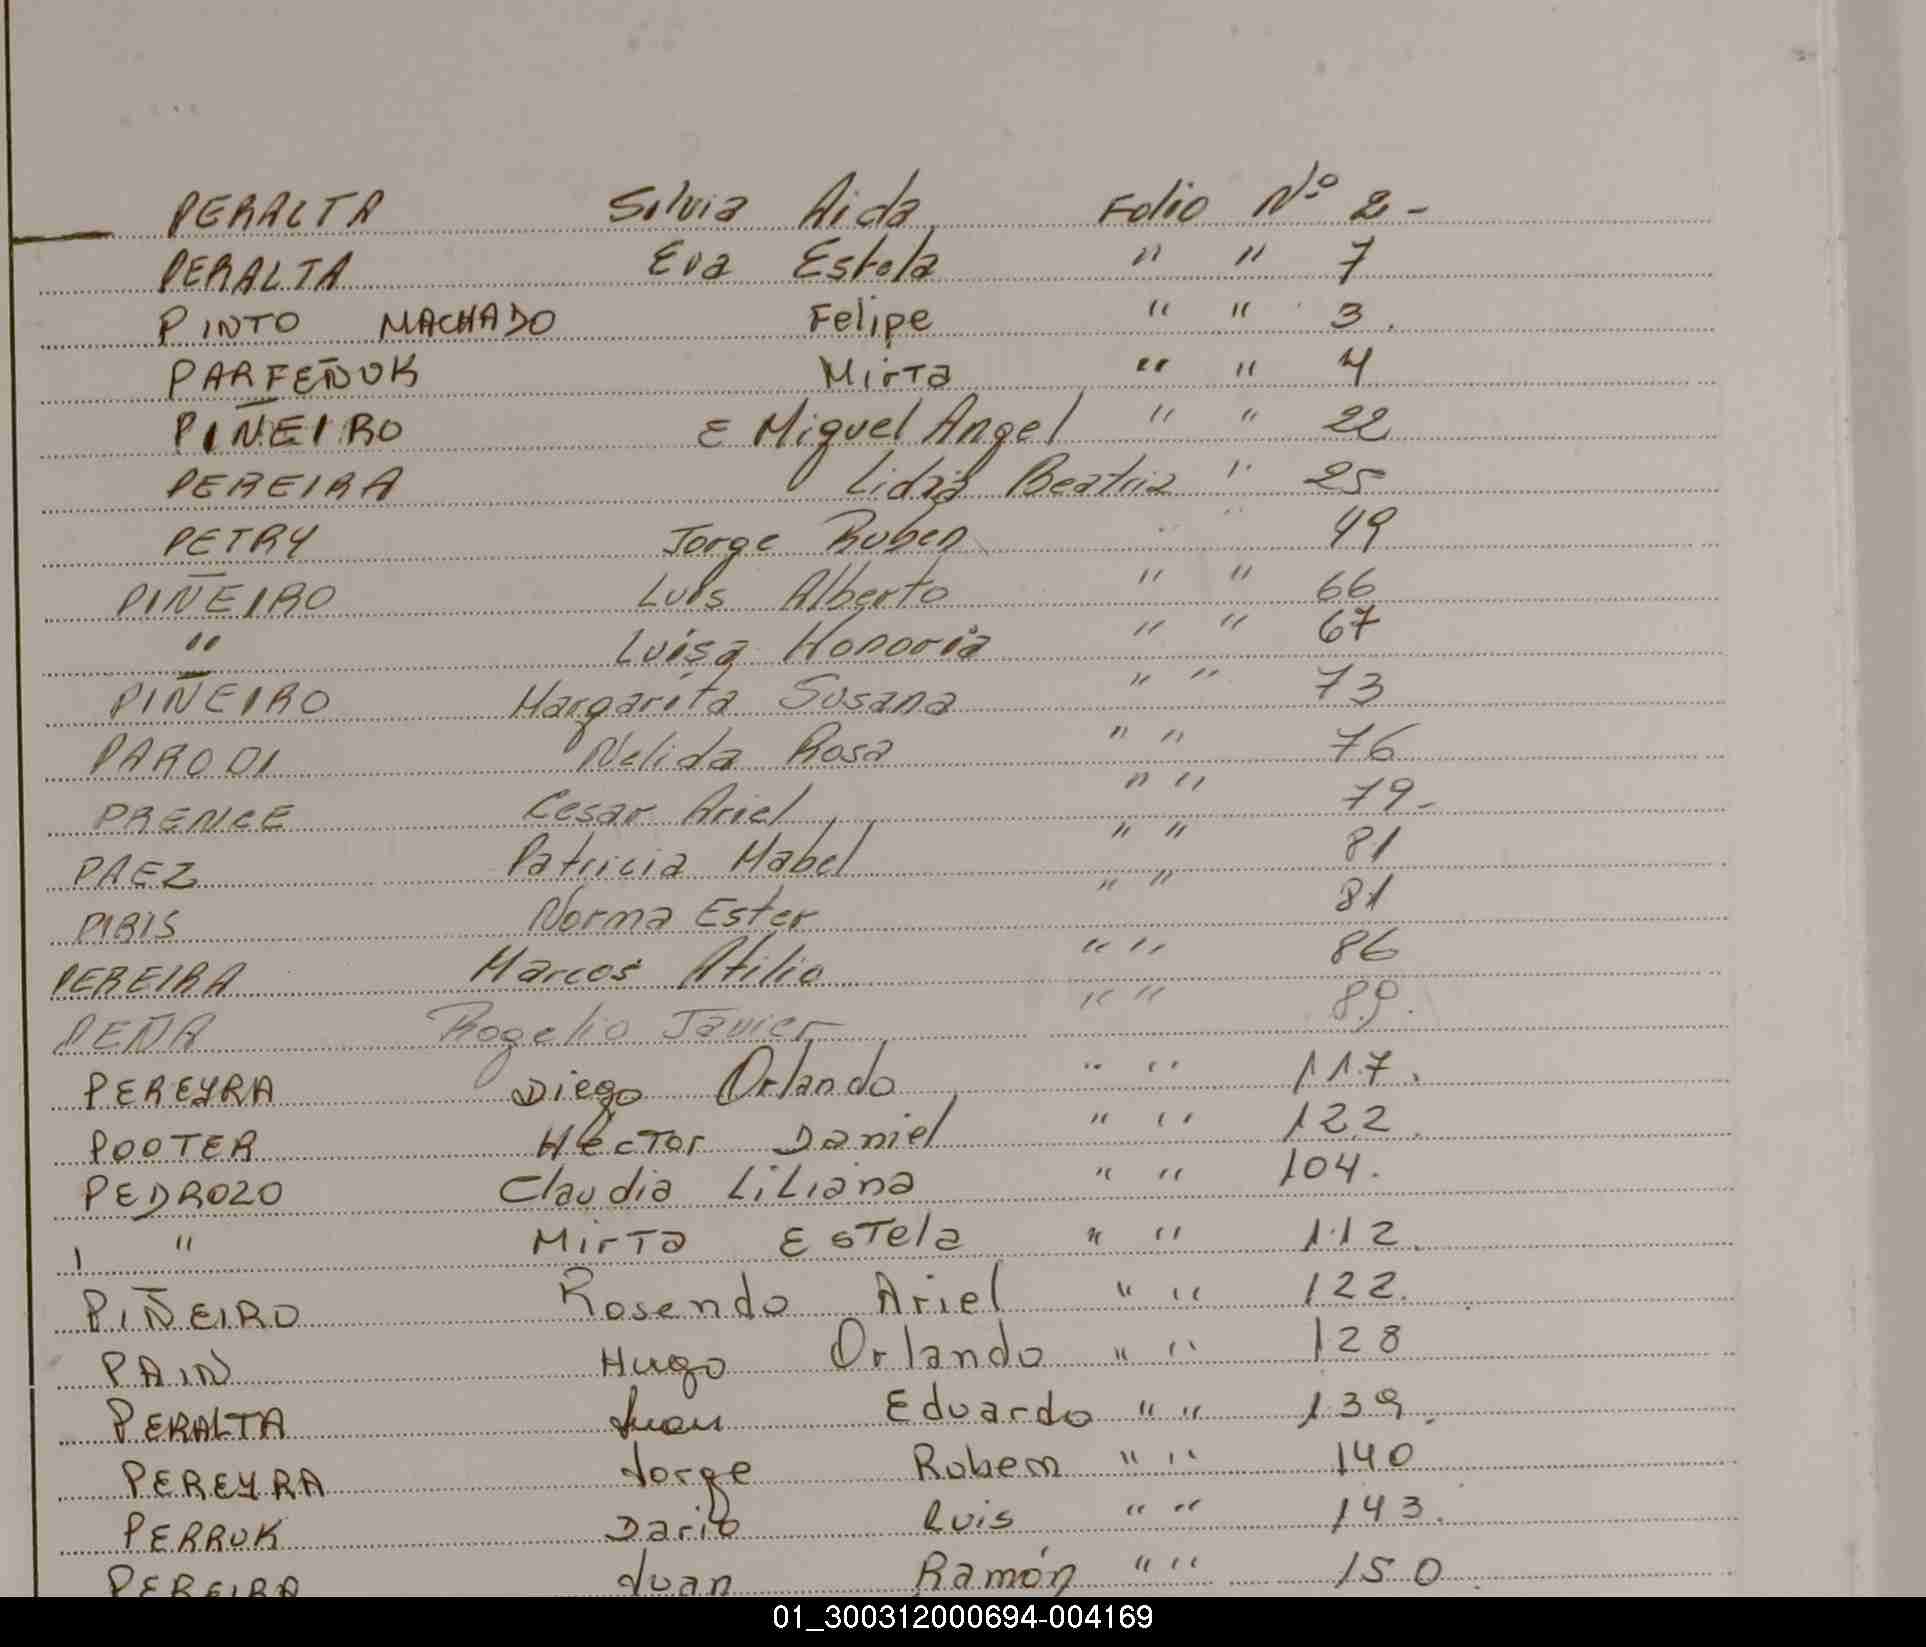 PERALTA Silvia Aida Folio Nº 2-
PERALTA Eva Estela " " 7
PINTO MACHADO Felipe " " 3.
PARFEÑUK Mirta " " 4
PIÑEIRO E Miguel Angel " " 22
PEREIRA Lidia Beatriz " 25
PETRY Jorge Ruben " " 49
PIÑEIRO Luis Alberto " " 66
" Luisa Honoria " " 67
PIÑEIRO Margarita Susana " " 73
PARODI Nelida Rosa " " 76
PRENCE Cesar Ariel " " 79-
PAEZ Patricia Mabel " " 81
PIRIS Norma Ester " " 81
PEREIRA Marcos Atilio " " 86
PEÑA Rogelio Javier " " 89.
PEREYRA Diego Orlando " " 117.
POOTER Héctor Daniel " " 122.
PEDROZO Claudia Liliana " " 104.
" Mirta Estela " " 112.
PIÑEIRO Rosendo Ariel " " 122.
PAIN Hugo Orlando " " 128
PERALTA Juan Eduardo " " 139.
PEREYRA Jorge Rubem " " 140
PERRUK Dario Luis " " 143.
PEREIRA Juan Ramón " " 150.
01_300312000694-004169